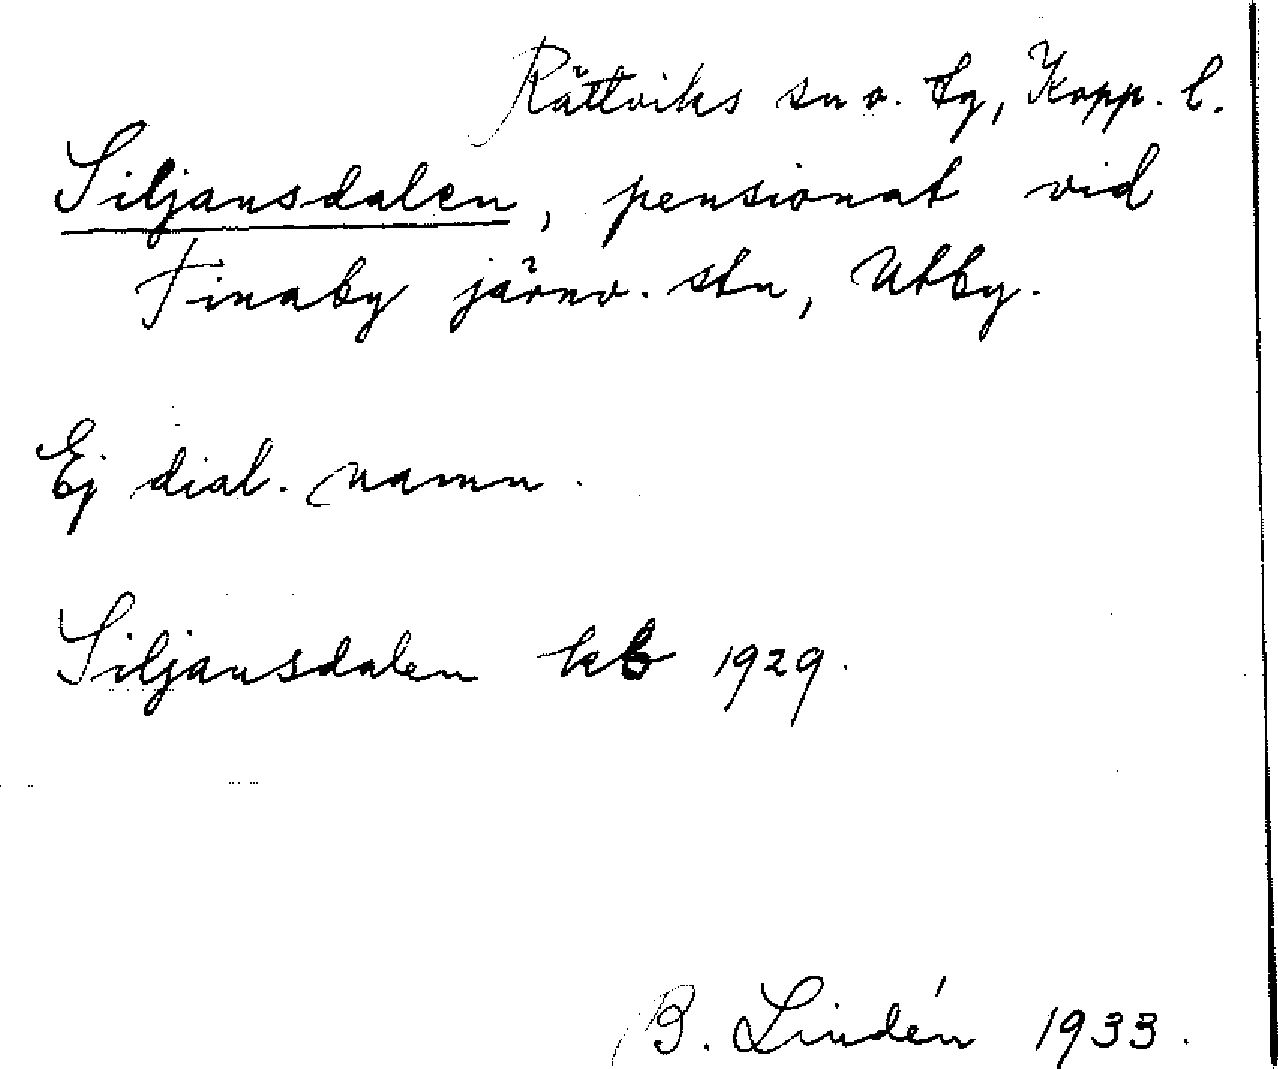 Rättviks sn o. tg, Kopp. l.
Siljansdalen, pensionat vid
Tinaby järnv. stn, Utby.
Ej dial. namn.
Siljansdalen kb 1929.
B. Lindén 1933.